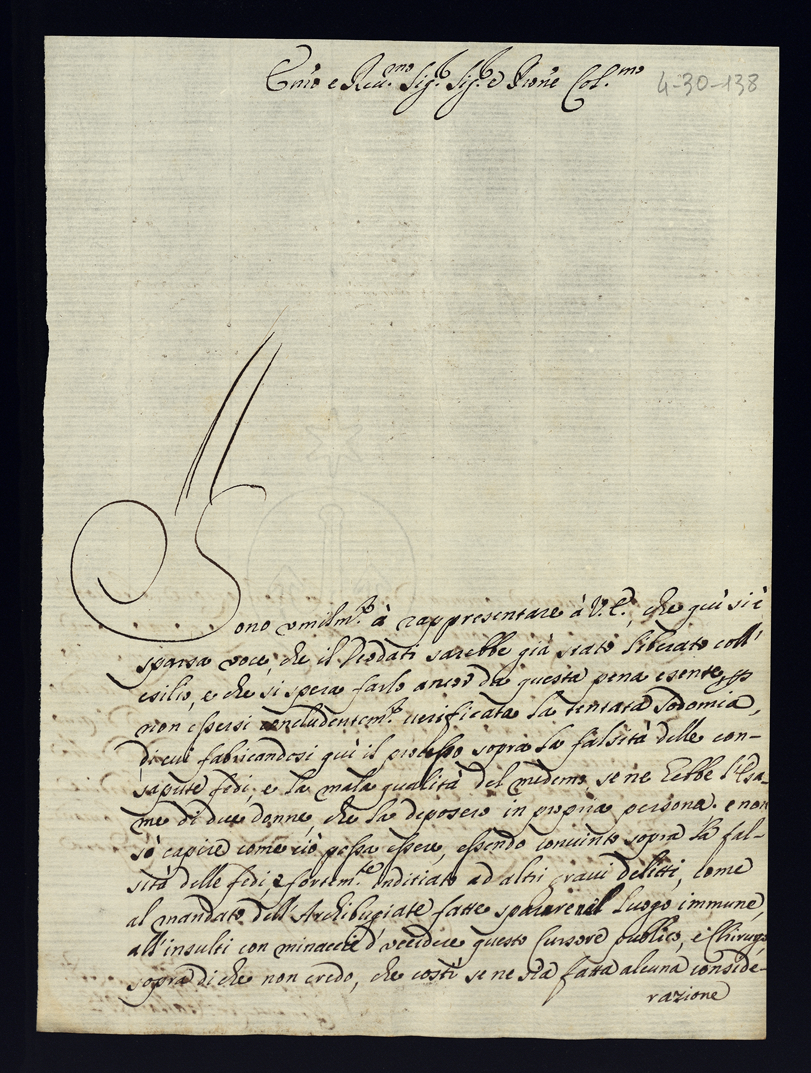 Emo e Rev.mo Sig.r Sig.r e Prone Col.mo 4-30-138
Sono umilm.te à rappresentare à V.E., che quì si è
sparsa voce, che il Deodati sarebbe già stato liberato coll'
esilio, e che si spera farlo ancor da questa pena esente,
non essersi concludentem.te verificata la tentata Sodomia,
di cui fabricandosi quì il processo sopra la falsità delle con-
sapute fedi, e la mala qualità del medemo, se ne hebbe l'Esa-
me di due donne, che la deposero in propria persona. e non
sò capire come ciò possa essere, essendo convinto sopra la fal-
sità delle fedi, e fortem.te inditiato ad altri gravi delitti, come
al mandato dell'Archibugiate fatte sparare nel luogo immune,
all'insulti con minaccie d'uccidere questo Cursore publico, e Chirurgo
sopra di che non credo, che costì se ne sia fatta alcuna conside-
razione